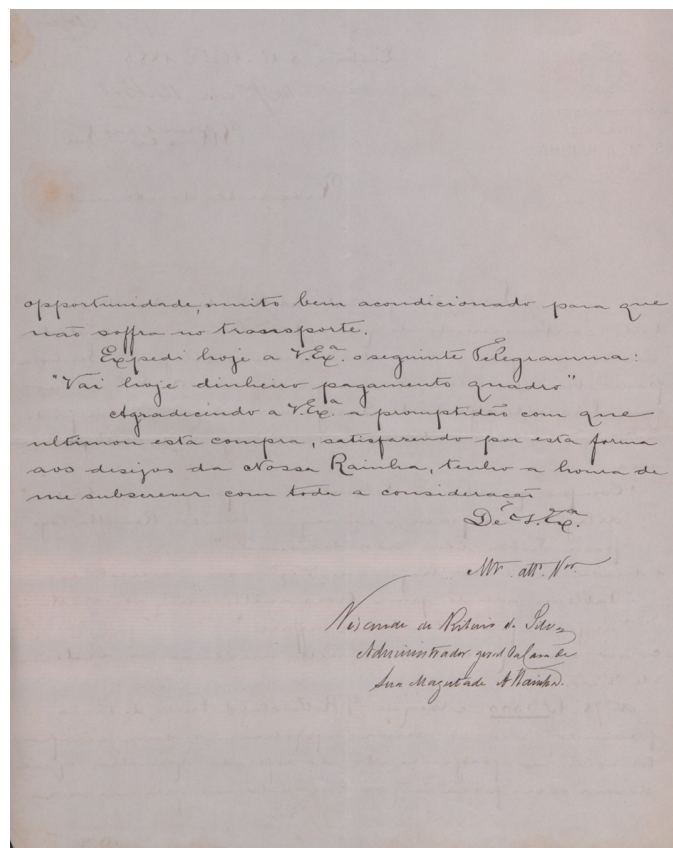 opportunidade, muito bem acondicionado para que
não soffra no transporte.
Expedi hoje a V. Exª. o seguinte Telegramma:
"Vai hoje dinheiro pagamento quadro"
Agradecindo a V. Exª a promptidão com que
ultimou esta compra, satisfazendo por esta forma
aos desijos da Nossa Rainha, tenho a honra de
me subscrever com toda a consideração
De V. Exª.
Mto. attº. Vor.
Visconde da
Administrador geral da Casa de
Sua Magestade A Rainha.